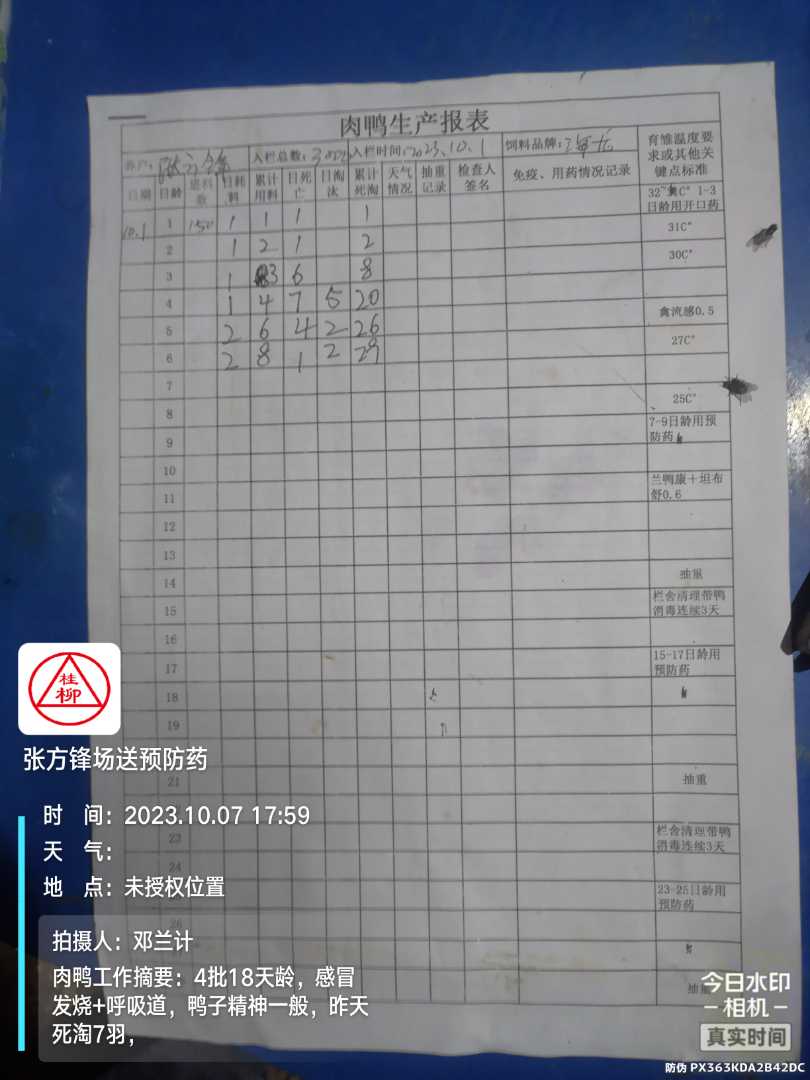 肉鸭生产报表
养户：张方锋 入栏总数： 入栏时间：2023.10.1 饲料品牌： 育雏温度要求或其他关键点标准
日期 日龄 进料数 日耗料 累计用料 日死亡 日淘汰 累计死淘 天气情况 抽重记录 检查人签名 免疫、用药情况记录
10.1 1 150 1 1 1 1 1-3日龄用开口药
2 1 2 1 2 31C°
3 1 3 6 8 30C°
4 1 4 7 5 20
5 2 6 4 2 26 禽流感0.5
6 2 8 1 2 29 27C°
7
8 25C°
9 7-9日龄用预防药
10
11 兰鸭康＋坦布舒0.6
12
13
14 抽重
15 栏舍清理带鸭消毒连续3天
16
17 15-17日龄用预防药
18
19
21 抽重
23 栏舍清理带鸭消毒连续3天
24
23-25日龄用预防药
26
抽重
桂
柳
张方锋场送预防药
时 间：2023.10.07 17:59
天 气：
地 点：未授权位置
拍摄人：邓兰计
肉鸭工作摘要：4批18天龄，感冒
发烧+呼吸道，鸭子精神一般，昨天
死淘7羽，
今日水印
相机
真实时间
防伪 PX363KDA2B42DC